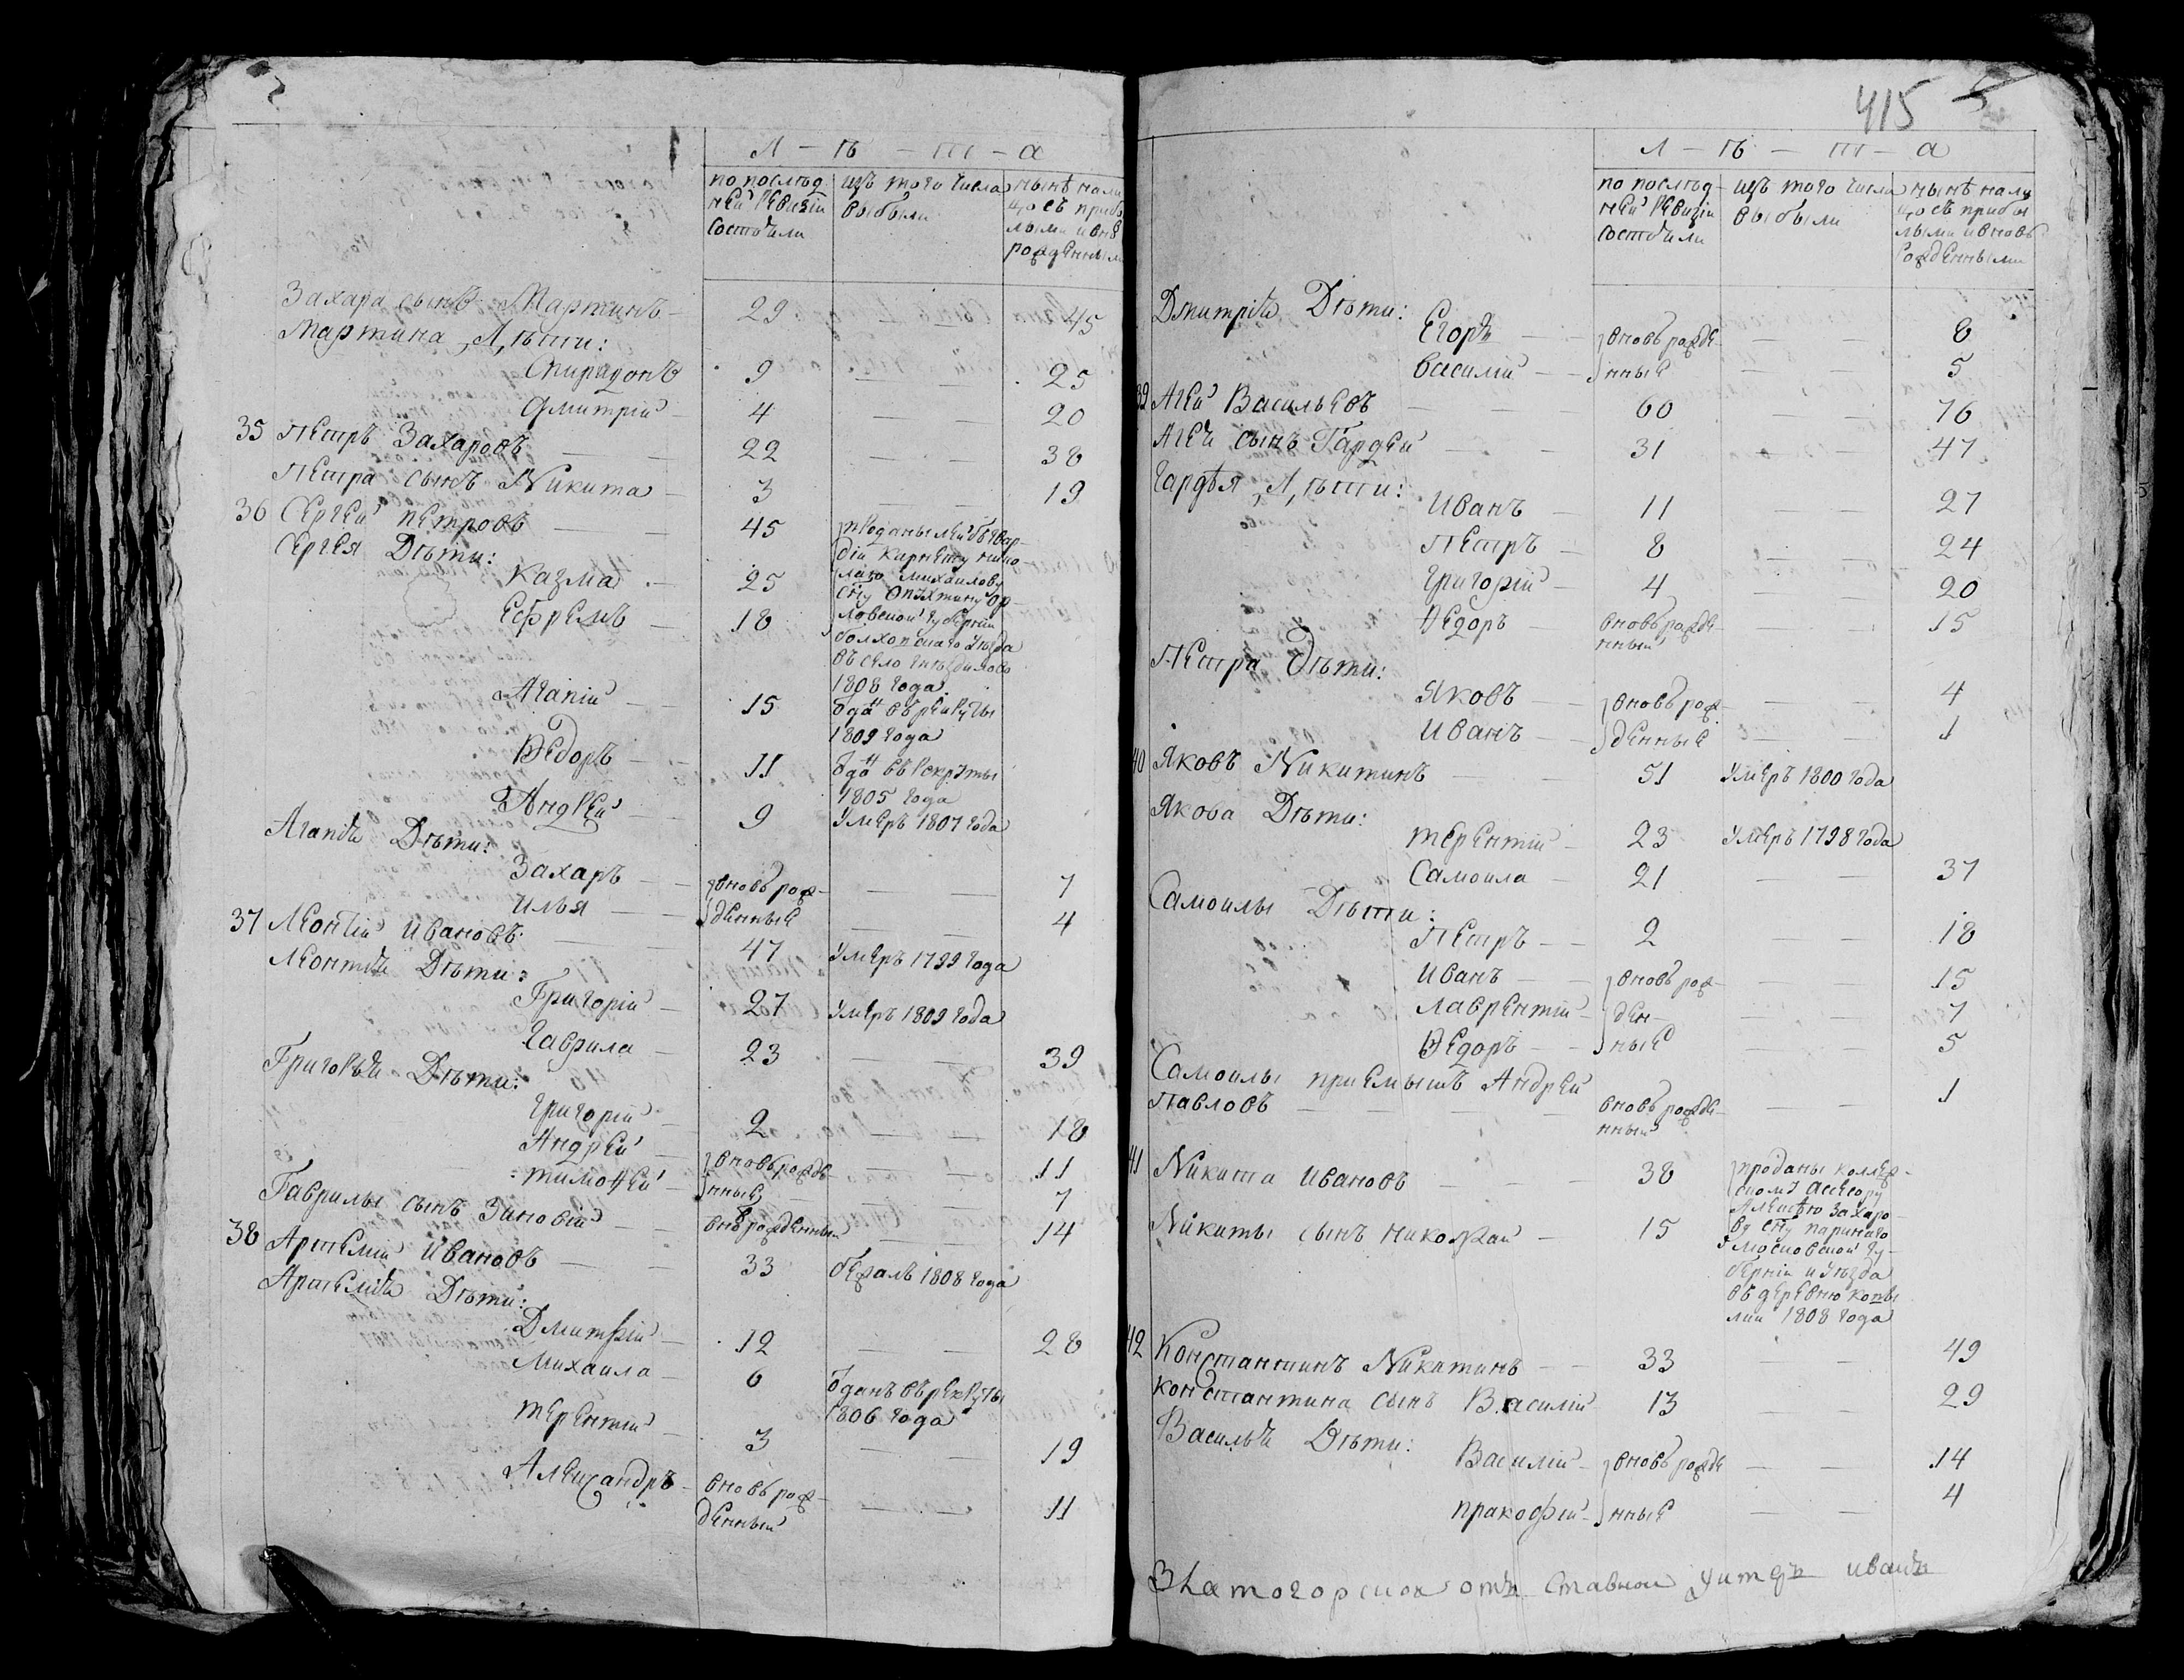 Л – ѣ – т – а
по послѣд
ней ревизіи
состояли
изъ того числа
выбыли
нынѣ нали
цо съ прибы
лыми и внѣ
рожденными
Захара сынъ Мартинъ – 29 – – 45
Мартина Дѣти:
Спиридонъ 9 – – 25
Дмитрій – 4 – – 20
35 Петръ Захаровъ – – 22 – – 38
Петра сынъ Никита – 3 – – 19
36 Сергей Петровъ – – 45 проданы лейбъ гвар–
діи карнету нико
лаю михаилову
сну Опухтину ор–
ловской губерніи
болховскаго уѣзда
въ село гнѣздилово
1808 года
Сергея Дѣти:
Казма – 25
Ефремъ – 18
Агапій – – 15 Ѿданъ въ рекруты
1809 года
Ѳедоръ – – 11 Ѿданъ въ рекруты
1805 года
Андрей – – 9 умеръ 1807 года
Агапія Дѣти:
Захаръ – – вновь рож– – – 7
Илья – – денные – – 4
37 Леонтій Ивановъ – – 47 умеръ 1799 года
Леонтія Дѣти:
Григорій – 27 умеръ 1809 года
Гаврила – 23 – – 39
Григорья Дѣти:
Григорій – 2 – – 18
Андрей – вновь рожде – – 11
тимоѳей – нные – – 7
Гаврилы сынъ Зиновій – – внъ рожденный – – 14
38 Артемій Ивановъ – – 33 бежалъ 1808 года
Артемія Дѣти:
Дмитрій – 12 – – 28
Михаила – 6 Ѿданъ въ рекруты
1806 года
терентій – 3 – – 19
Александръ – вновь рож– – – 11
денный
415 5
Л – ѣ – т – а
по послѣд–
ней ревизіи
состояли
изъ того числа
выбыли
нынѣ нали
цо съ прибы
лыми и вновь
рожденными
Дмитрія Дѣти:
Егоръ – – вновь рожде– – – 8
Василій – – нные – – 5
39 Агей Васильевъ – – – 60 – – 76
Агея сынъ Гардей – – 31 – – 47
Гардѣя Дѣти:
Иванъ – 11 – – 27
Петръ – 8 – – 24
Григорій – 4 – – 20
Ѳедоръ – вновь рожде– – – 15
нный
Петра Дѣти:
Яковъ – – вновь рож– – – 4
Иванъ – – денные – – 1
40 Яковъ Никитинъ – – 51 умеръ 1800 года
Якова Дѣти:
терентій – 23 умеръ 1798 года
Самоила – 21 – – 37
Самоилы Дѣти:
Петръ – – 2 – – 18
Иванъ – вновь рож– – – 15
Лаврентій – ден– – – 7
Ѳедоръ – – ные – – 5
Самоилы приемышъ Андрей
Павловъ – – – – вновь рожде– – – 1
нный
41 Никита Ивановъ – – – 38 проданы коллеж–
скому асесору
Алексѣю захаро
ву сну
московской гу–
берніи и уѣзда
въ деревню
1808 года
Никиты сынъ николай – 15
42 Константинъ Никитинъ – – 33 – 49
Константина сынъ Василій 13 – – 29
Василья Дѣти:
Василій – вновь рожде – – 14
пракофій – нные – – 4